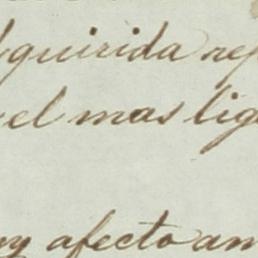 dquirida rep
el mas lig
uy afecto am